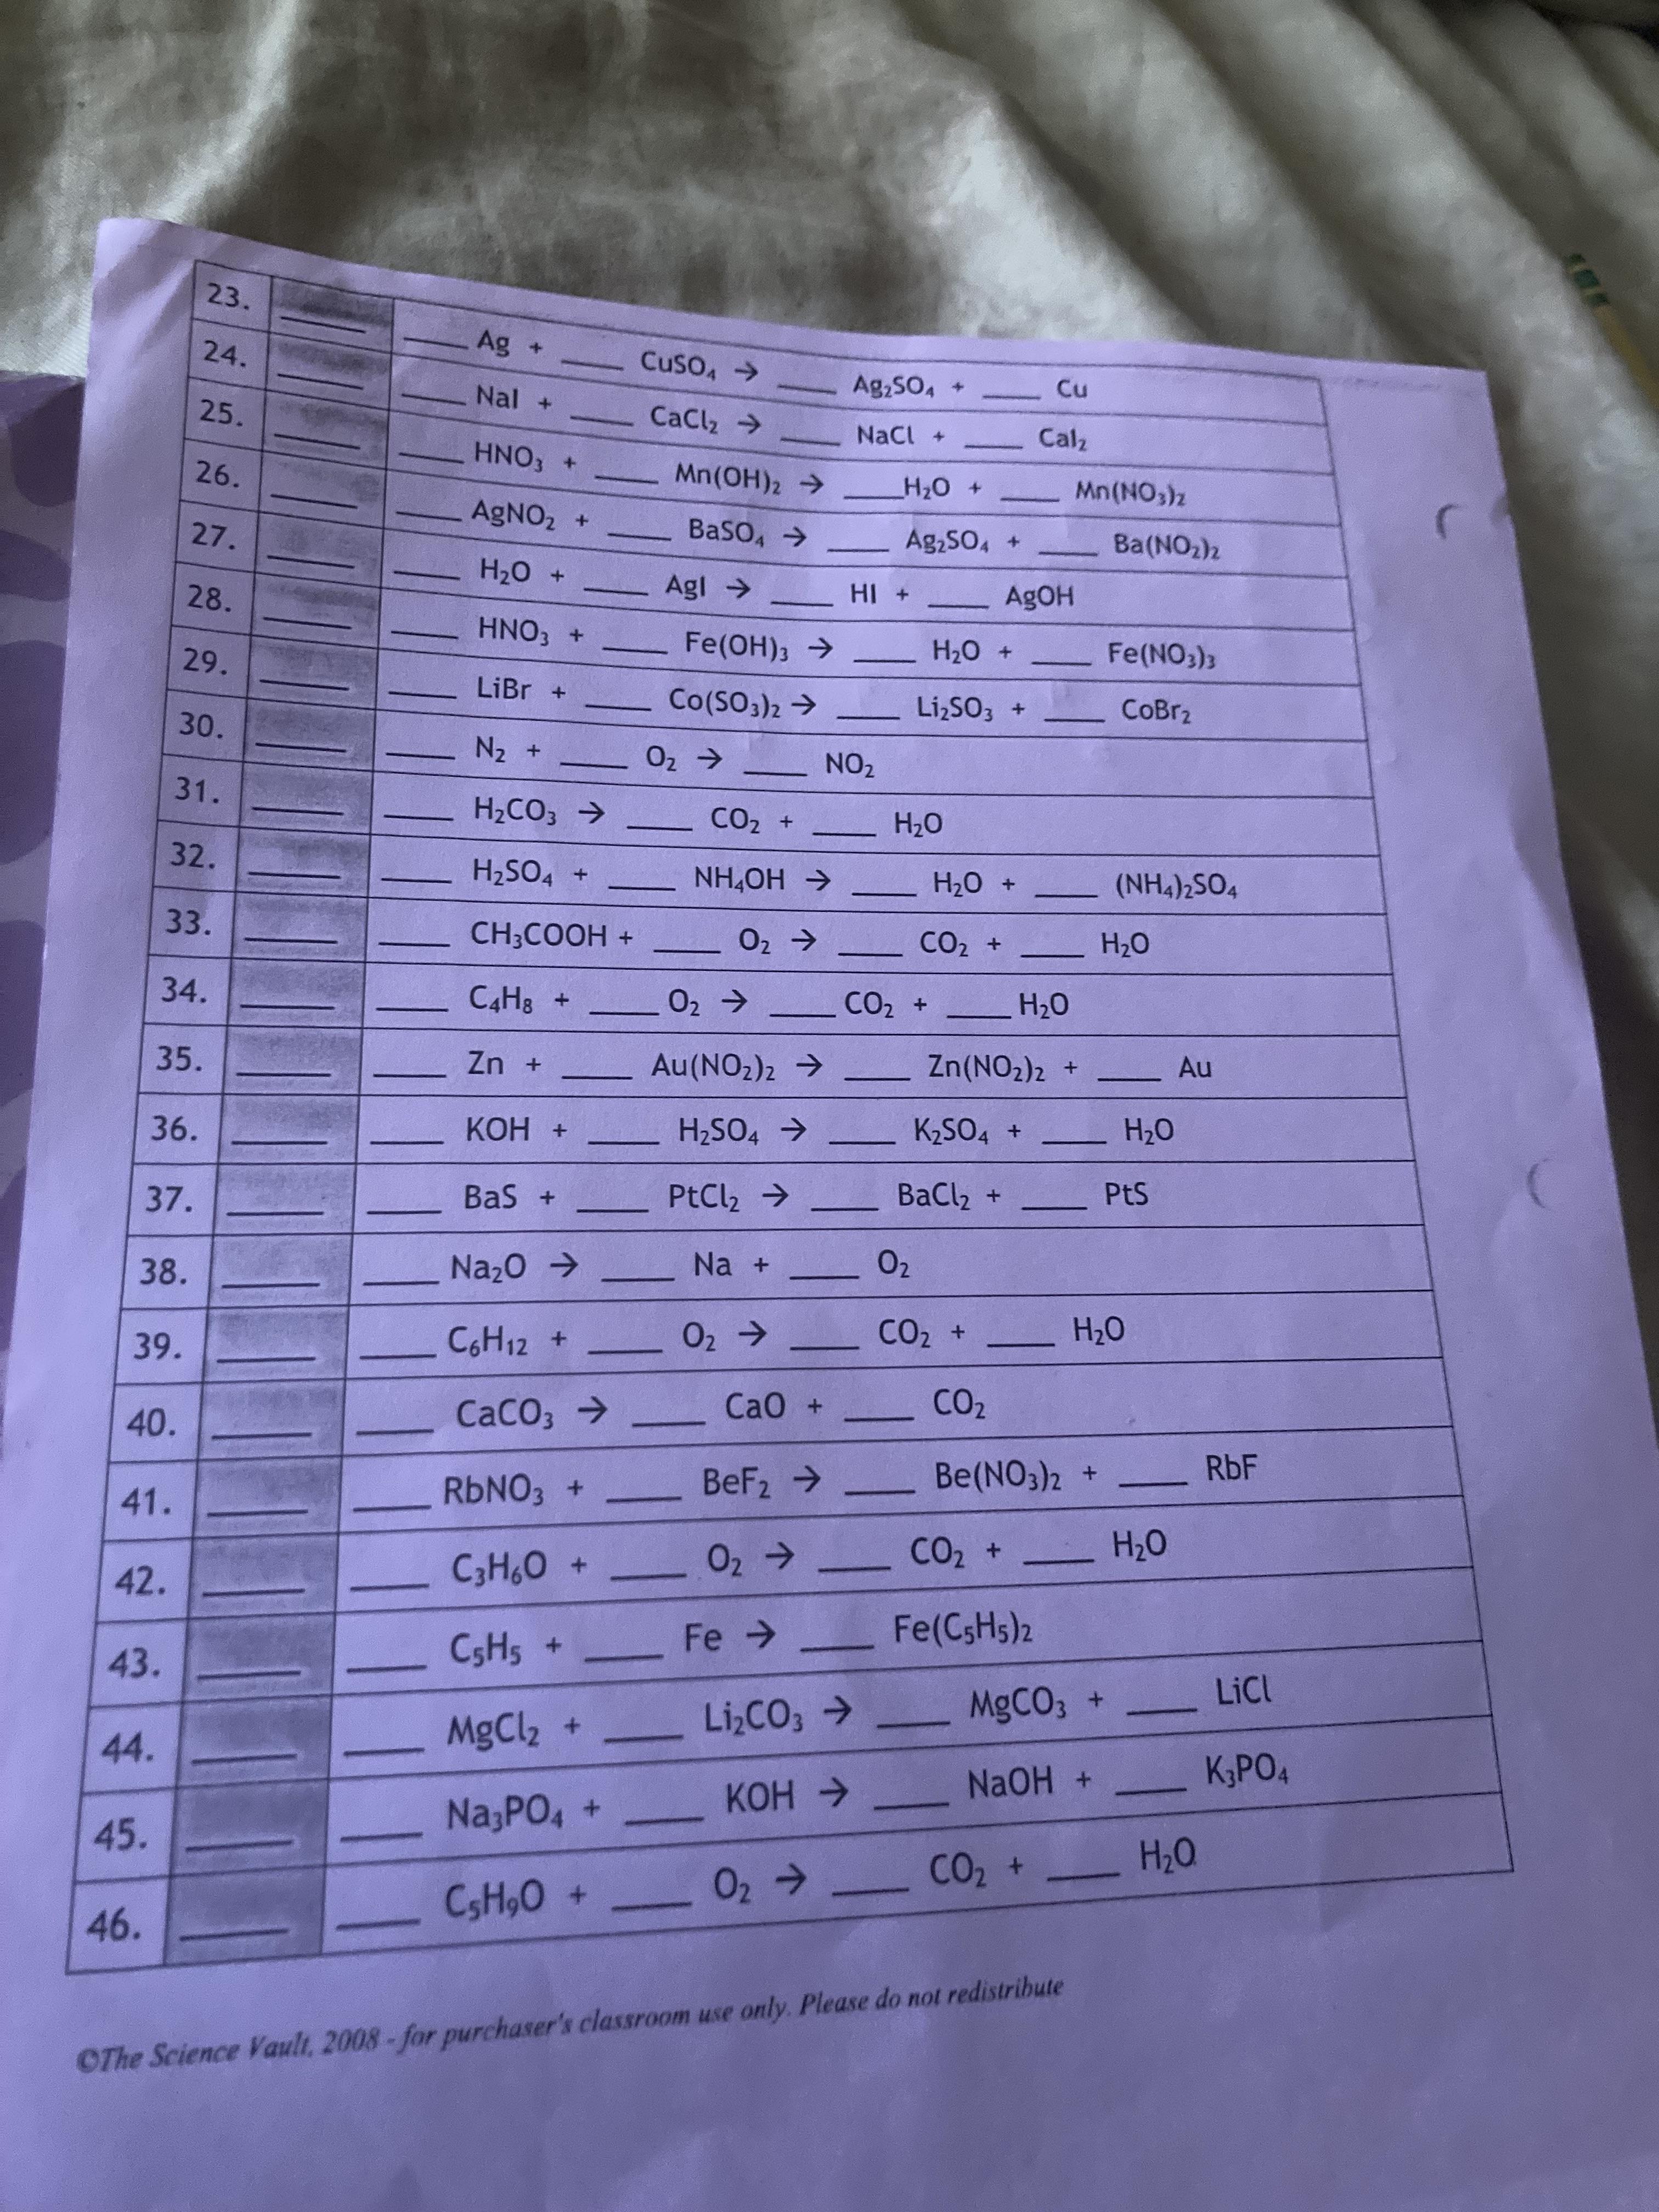 23. ____ ____ Ag + ____ CuSO₄ → ____ Ag₂SO₄ + ____ Cu
24. ____ ____ NaI + ____ CaCl₂ → ____ NaCl + ____ CaI₂
25. ____ ____ HNO₃ + ____ Mn(OH)₂ → ____ H₂O + ____ Mn(NO₃)₂
26. ____ ____ AgNO₂ + ____ BaSO₄ → ____ Ag₂SO₄ + ____ Ba(NO₂)₂
27. ____ ____ H₂O + ____ AgI → ____ HI + ____ AgOH
28. ____ ____ HNO₃ + ____ Fe(OH)₃ → ____ H₂O + ____ Fe(NO₃)₃
29. ____ ____ LiBr + ____ Co(SO₃)₂ → ____ Li₂SO₃ + ____ CoBr₂
30. ____ ____ N₂ + ____ O₂ → ____ NO₂
31. ____ ____ H₂CO₃ → ____ CO₂ + ____ H₂O
32. ____ ____ H₂SO₄ + ____ NH₄OH → ____ H₂O + ____ (NH₄)₂SO₄
33. ____ ____ CH₃COOH + ____ O₂ → ____ CO₂ + ____ H₂O
34. ____ ____ C₄H₈ + ____ O₂ → ____ CO₂ + ____ H₂O
35. ____ ____ Zn + ____ Au(NO₂)₂ → ____ Zn(NO₂)₂ + ____ Au
36. ____ ____ KOH + ____ H₂SO₄ → ____ K₂SO₄ + ____ H₂O
37. ____ ____ BaS + ____ PtCl₂ → ____ BaCl₂ + ____ PtS
38. ____ ____ Na₂O → ____ Na + ____ O₂
39. ____ ____ C₆H₁₂ + ____ O₂ → ____ CO₂ + ____ H₂O
40. ____ ____ CaCO₃ → ____ CaO + ____ CO₂
41. ____ ____ RbNO₃ + ____ BeF₂ → ____ Be(NO₃)₂ + ____ RbF
42. ____ ____ C₃H₆O + ____ O₂ → ____ CO₂ + ____ H₂O
43. ____ ____ C₅H₅ + ____ Fe → ____ Fe(C₅H₅)₂
44. ____ ____ MgCl₂ + ____ Li₂CO₃ → ____ MgCO₃ + ____ LiCl
45. ____ ____ Na₃PO₄ + ____ KOH → ____ NaOH + ____ K₃PO₄
46. ____ ____ C₅H₉O + ____ O₂ → ____ CO₂ + ____ H₂O
©The Science Vault, 2008 - for purchaser's classroom use only. Please do not redistribute